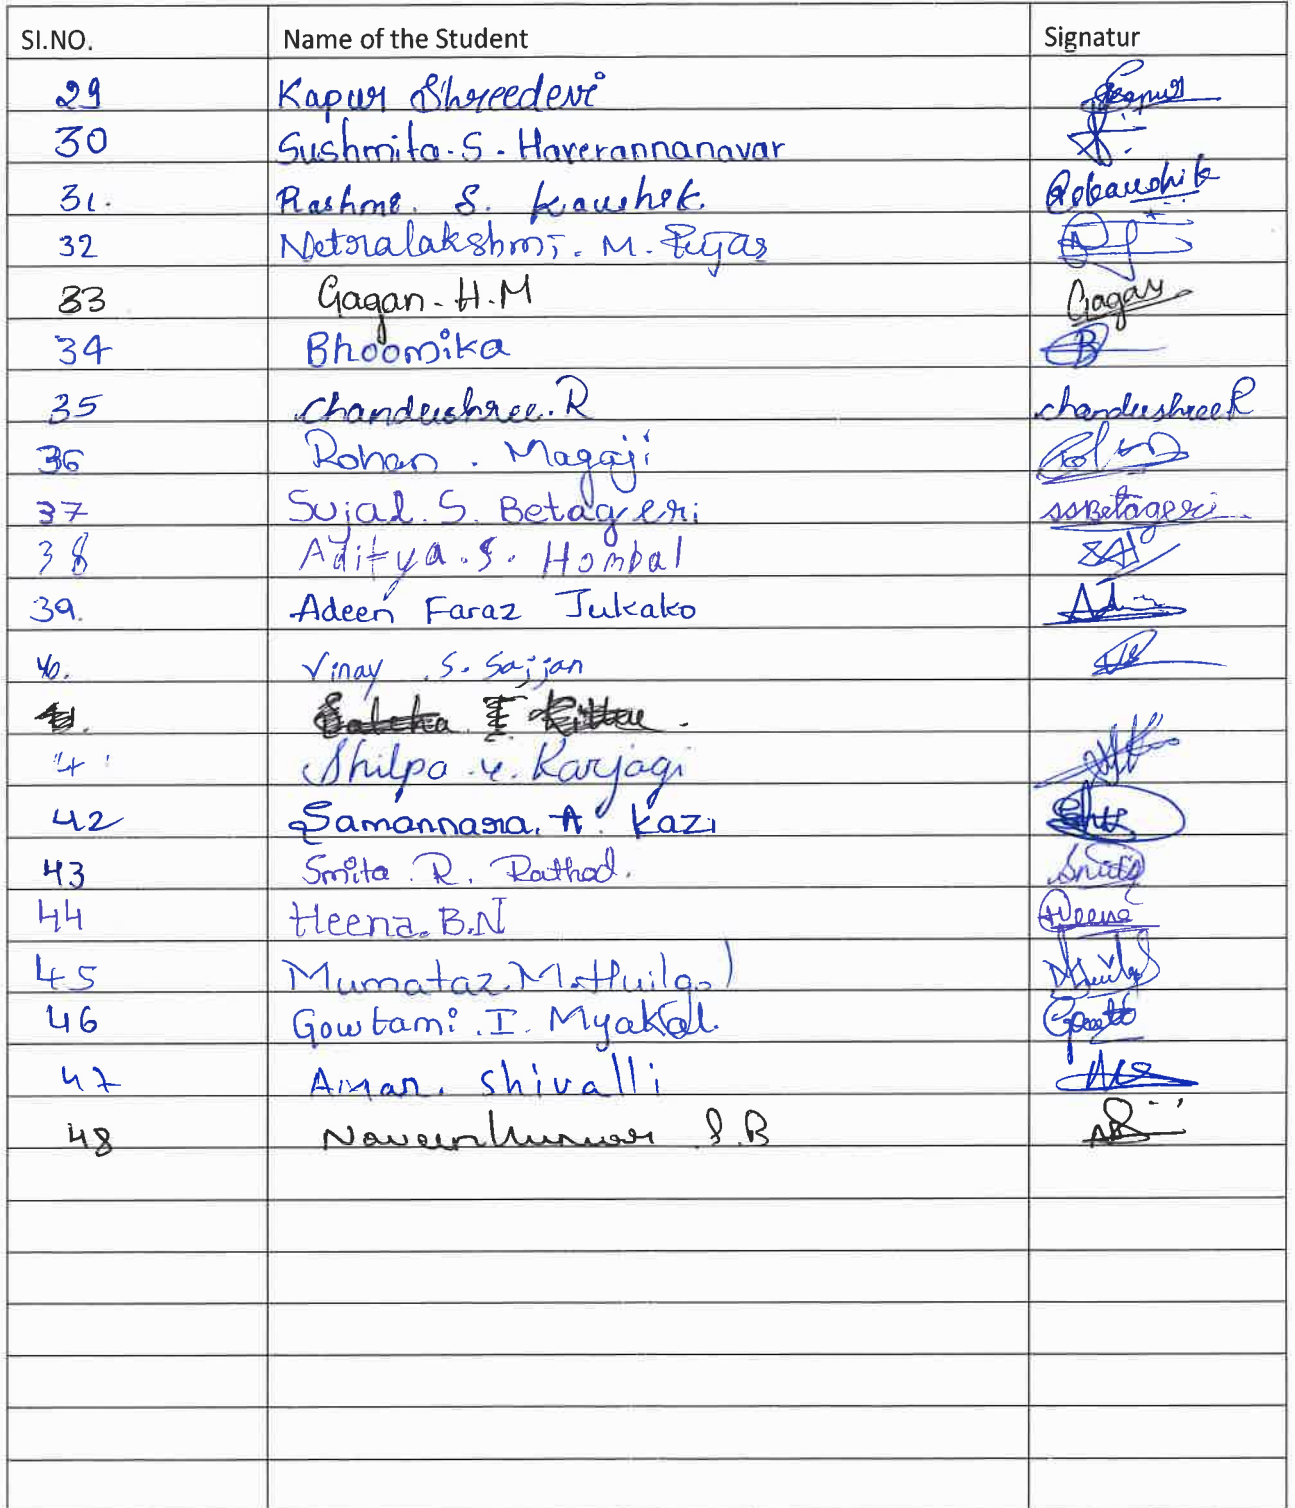 SI.NO. Name of the Student Signatur
29 Kapur Shreedevi Kapur
30 Sushmita. S. Haverannanavar
31. Rashmi. S. Kaushik. RSKaushik
32 Netralakshmi. M. Pujar
33 Gagan. H.M Gagan
34 Bhoomika B
35 Chandushree. R chandushree R
36 Rohan . Magaji
37 Sujal. S. Betageri SSBetageri
38 Aditya. S. Hombal
39. Adeen Faraz Jukako
40. Vinay . S. Sajjan
Shilpa . Y. Karjagi
42 Samannara. A. Kazi
43 Smita R. Rathod. Smita
44 Heena. B.N Heena
45 Mumataz. M. Huilgol
46 Gowtami . I. Myakal.
47 Aman. Shivalli
48 Naveenkumar S.B